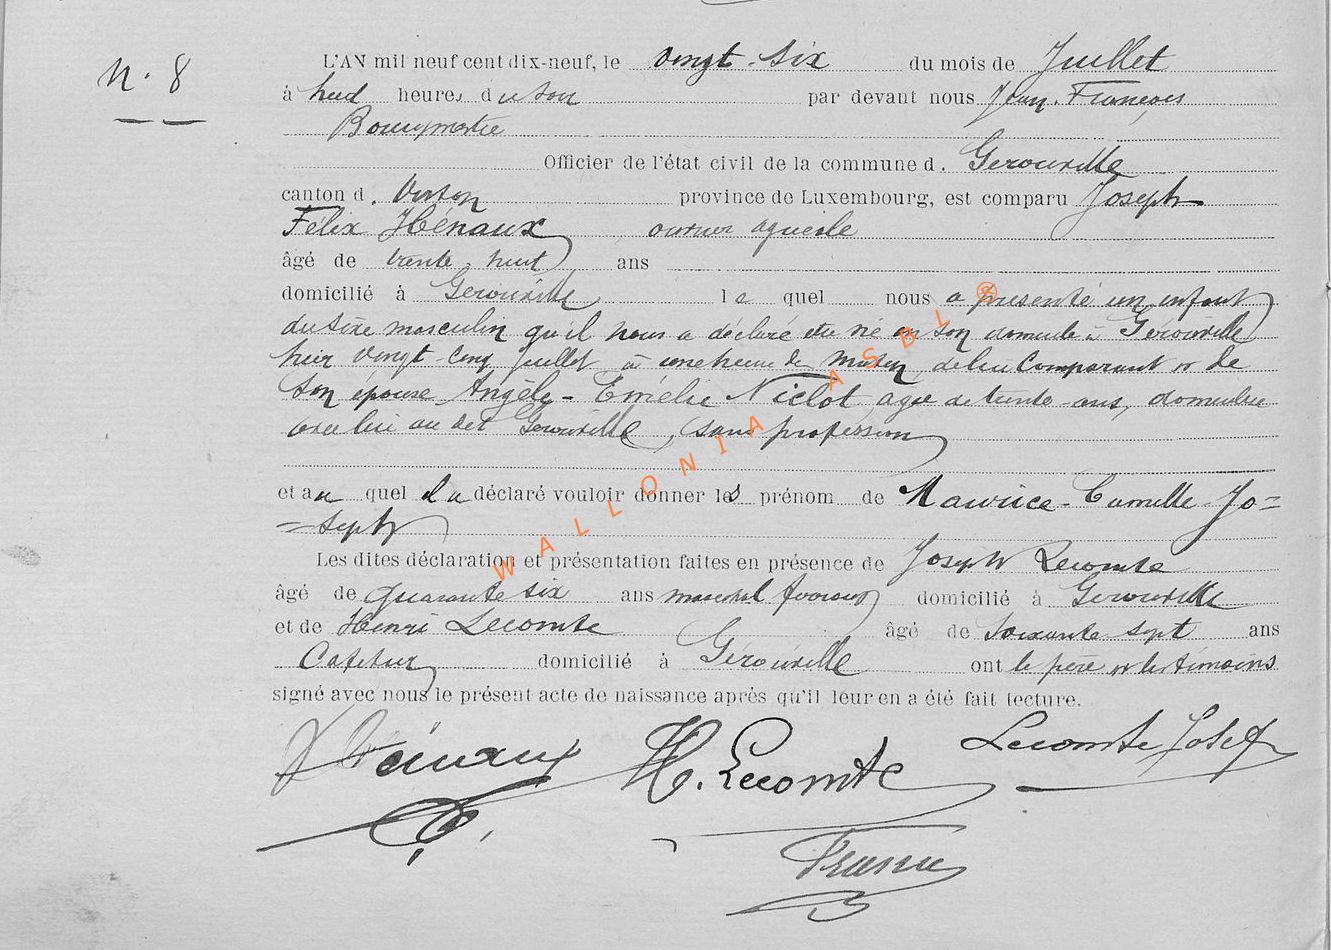 N. 8
L'AN mil neuf cent dix-neuf, le vingt-six du mois de Juillet
à huit heures du soir par devant nous Jean-François
Officier de l'état civil de la commune d. Gérouville
canton d. Virton province de Luxembourg, est comparu Joseph
Félix Hénaux, ouvrier agricole
âgé de trente-huit ans
domicilié à Gérouville le quel nous a présenté un enfant
du sexe masculin qu'il nous a déclaré être né en son domicile à Gérouville
hier vingt-cinq juillet à une heure du matin, de lui comparant et de
son épouse Angèle-Emélie Niclot, agée de trente-ans, domiciliée
avec lui au dit Gérouville, sans profession
et au quel il a déclaré vouloir donner les prénom de Maurice-Camille-Jo=
=seph
Les dites déclaration et présentation faites en présence de Joseph Lecomte
âgé de quarante six ans maréchal ferrant domicilié à Gérouville
et de Henri Lecomte âgé de soixante-sept ans
Cafetier domicilié à Gérouville ont le père et les témoins
signé avec nous le présent acte de naissance après qu'il leur en a été fait lecture.
Hénaux H. Lecomte Lecomte Josef
WALLONIA ASBL ®